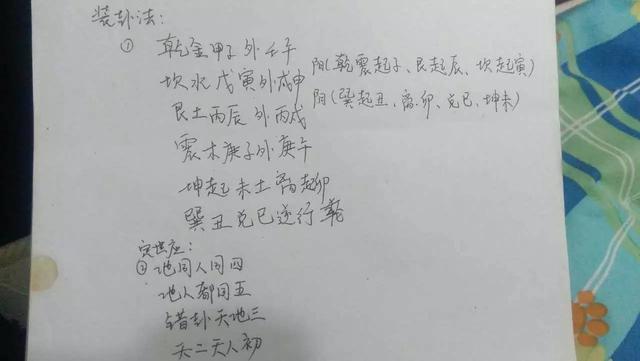 装卦法:
① 乾金甲子外壬午
坎水戊寅外戊申 阳(乾震起子、艮起辰、坎起寅)
艮土丙辰外丙戌 阳(巽起丑、离.卯、兑巳、坤未)
震木庚子外庚午
坤起未土离起卯
巽丑兑巳逆行轮
定世应:
② 地同人同四
地人都同五
错卦天地三
天二天人初